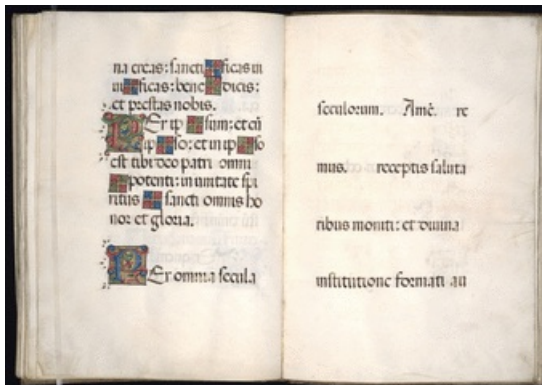 na creas: sancti✠ficas ui
ui✠ficas: bene✠dicis:
et prestas nobis.
PEr ip✠sum: et cū
ip✠so: et in ip✠so
est tibi deo patri omni
✠potenti: in unitate spi
ritus ✠ sancti omnis ho
nor et gloria.
PEr omnia secula
seculorum. Amē. re
mus. receptis saluta
ribus moniti: et diuina
institutione formati au